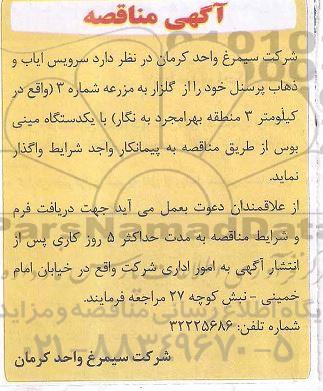 آگهی مناقصه
شرکت سیمرغ واحد کرمان در نظر دارد سرویس ایاب و
ذهاب پرسنل خود را از گلزار به مزرعه شماره ۳ (واقع در
کیلومتر ۳ منطقه بهرامجرد به نگار) با یکدستگاه مینی
بوس از طریق مناقصه به پیمانکار واجد شرایط واگذار
نماید.
از علاقمندان دعوت بعمل می آید جهت دریافت فرم
و شرایط مناقصه به مدت حداکثر ۵ روز کاری پس از
انتشار آگهی به امور اداری شرکت واقع در خیابان امام
خمینی - نبش کوچه ۲۷ مراجعه فرمایند.
شماره تلفن: ۳۲۲۲۵۶۸۶
شرکت سیمرغ واحد کرمان
ParsNamadData
۰۲۱-۸۸۳۴۹۶۷۰-۵